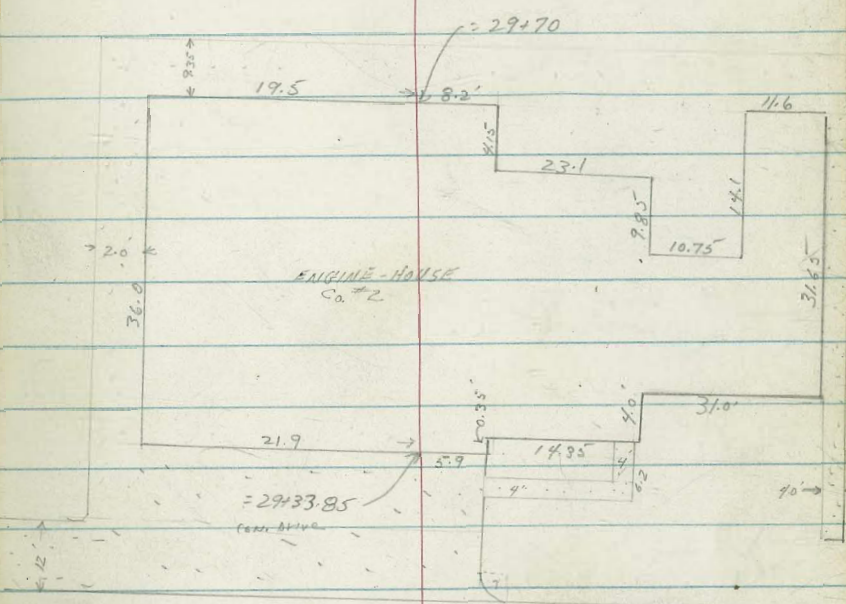 = 29+70
9.35
19.5
8.2'
11.6
4.15
23.1
9.85
14.1
10.75
2.0'
36.0
ENGINE-HOUSE
Co. #2
31.65
0.35'
4.0'
31.0'
21.9
5.9
14.35
4'
6.2
4'
4.0'
= 29+33.85
Con. Drive
12'